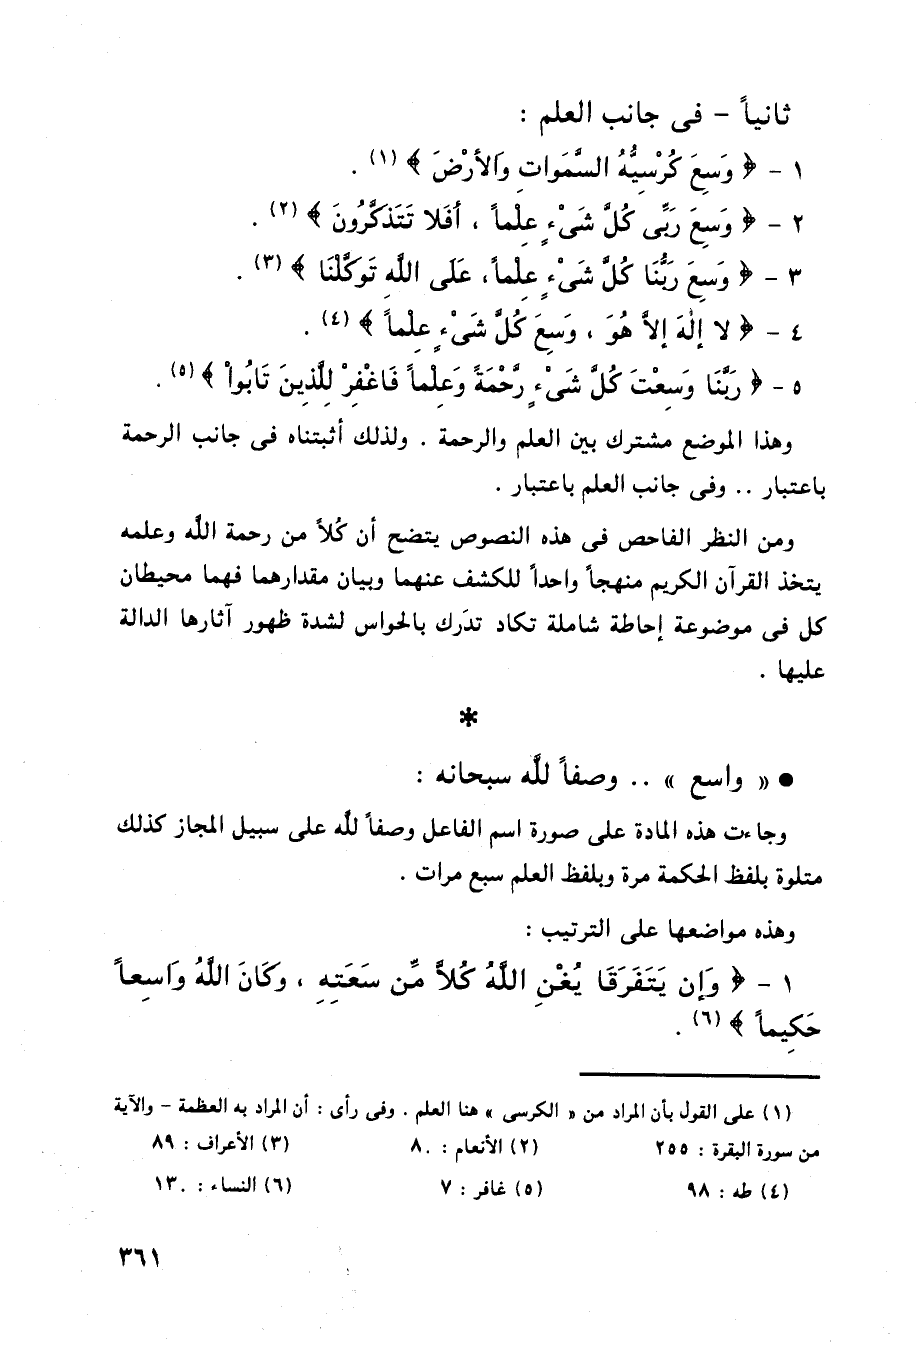 ثانياً – فى جانب العلم :
١ – ﴿ وَسِعَ كُرْسِيُّهُ السَّمَواتِ وَالأرْضَ ﴾ (١) .
٢ – ﴿ وَسِعَ رَبِّى كُلَّ شَىْءٍ عِلْماً ، أفَلا تَتَذَكَّرُونَ ﴾ (٢) .
٣ – ﴿ وَسِعَ رَبُّنَا كُلَّ شَىْءٍ عِلْماً، عَلَى اللَّهِ تَوَكَّلْنَا ﴾ (٣) .
٤ – ﴿ لا إلٰهَ إلاَّ هُوَ ، وَسِعَ كُلَّ شَىْءٍ عِلْماً ﴾ (٤) .
٥ – ﴿ رَبَّنَا وَسِعْتَ كُلَّ شَىْءٍ رَّحْمَةً وَعِلْماً فَاغْفِرْ لِلَّذِينَ تَابُواْ ﴾ (٥) .
وهذا الموضع مشترك بين العلم والرحمة . ولذلك أثبتناه فى جانب الرحمة
باعتبار .. وفى جانب العلم باعتبار .
ومن النظر الفاحص فى هذه النصوص يتضح أن كُلاً من رحمة الله وعلمه
يتخذ القرآن الكريم منهجاً واحداً للكشف عنهما وبيان مقدارهما فهما محيطان
كل فى موضوعة إحاطة شاملة تكاد تدَرك بالحواس لشدة ظهور آثارها الدالة
عليها .
*
● « واسع » .. وصفاً للَّه سبحانه :
وجاءت هذه المادة على صورة اسم الفاعل وصفاً للَّه على سبيل المجاز كذلك
متلوة بلفظ الحكمة مرة وبلفظ العلم سبع مرات .
وهذه مواضعها على الترتيب :
١ – ﴿ وَإِن يَتَفَرَقَا يُغْنِ اللَّهُ كُلاًّ مِّن سَعَتِهِ ، وَكَانَ اللَّهُ وَاسِعاً
حَكِيماً ﴾ (٦) .
(١) على القول بأن المراد من « الكرسى » هنا العلم . وفى رأى : أن المراد به العظمة – والآية
من سورة البقرة : ٢٥٥ (٢) الأنعام : ٨٠ (٣) الأعراف : ٨٩
(٤) طه : ٩٨ (٥) غافر : ٧ (٦) النساء : ١٣٠
٣٦١